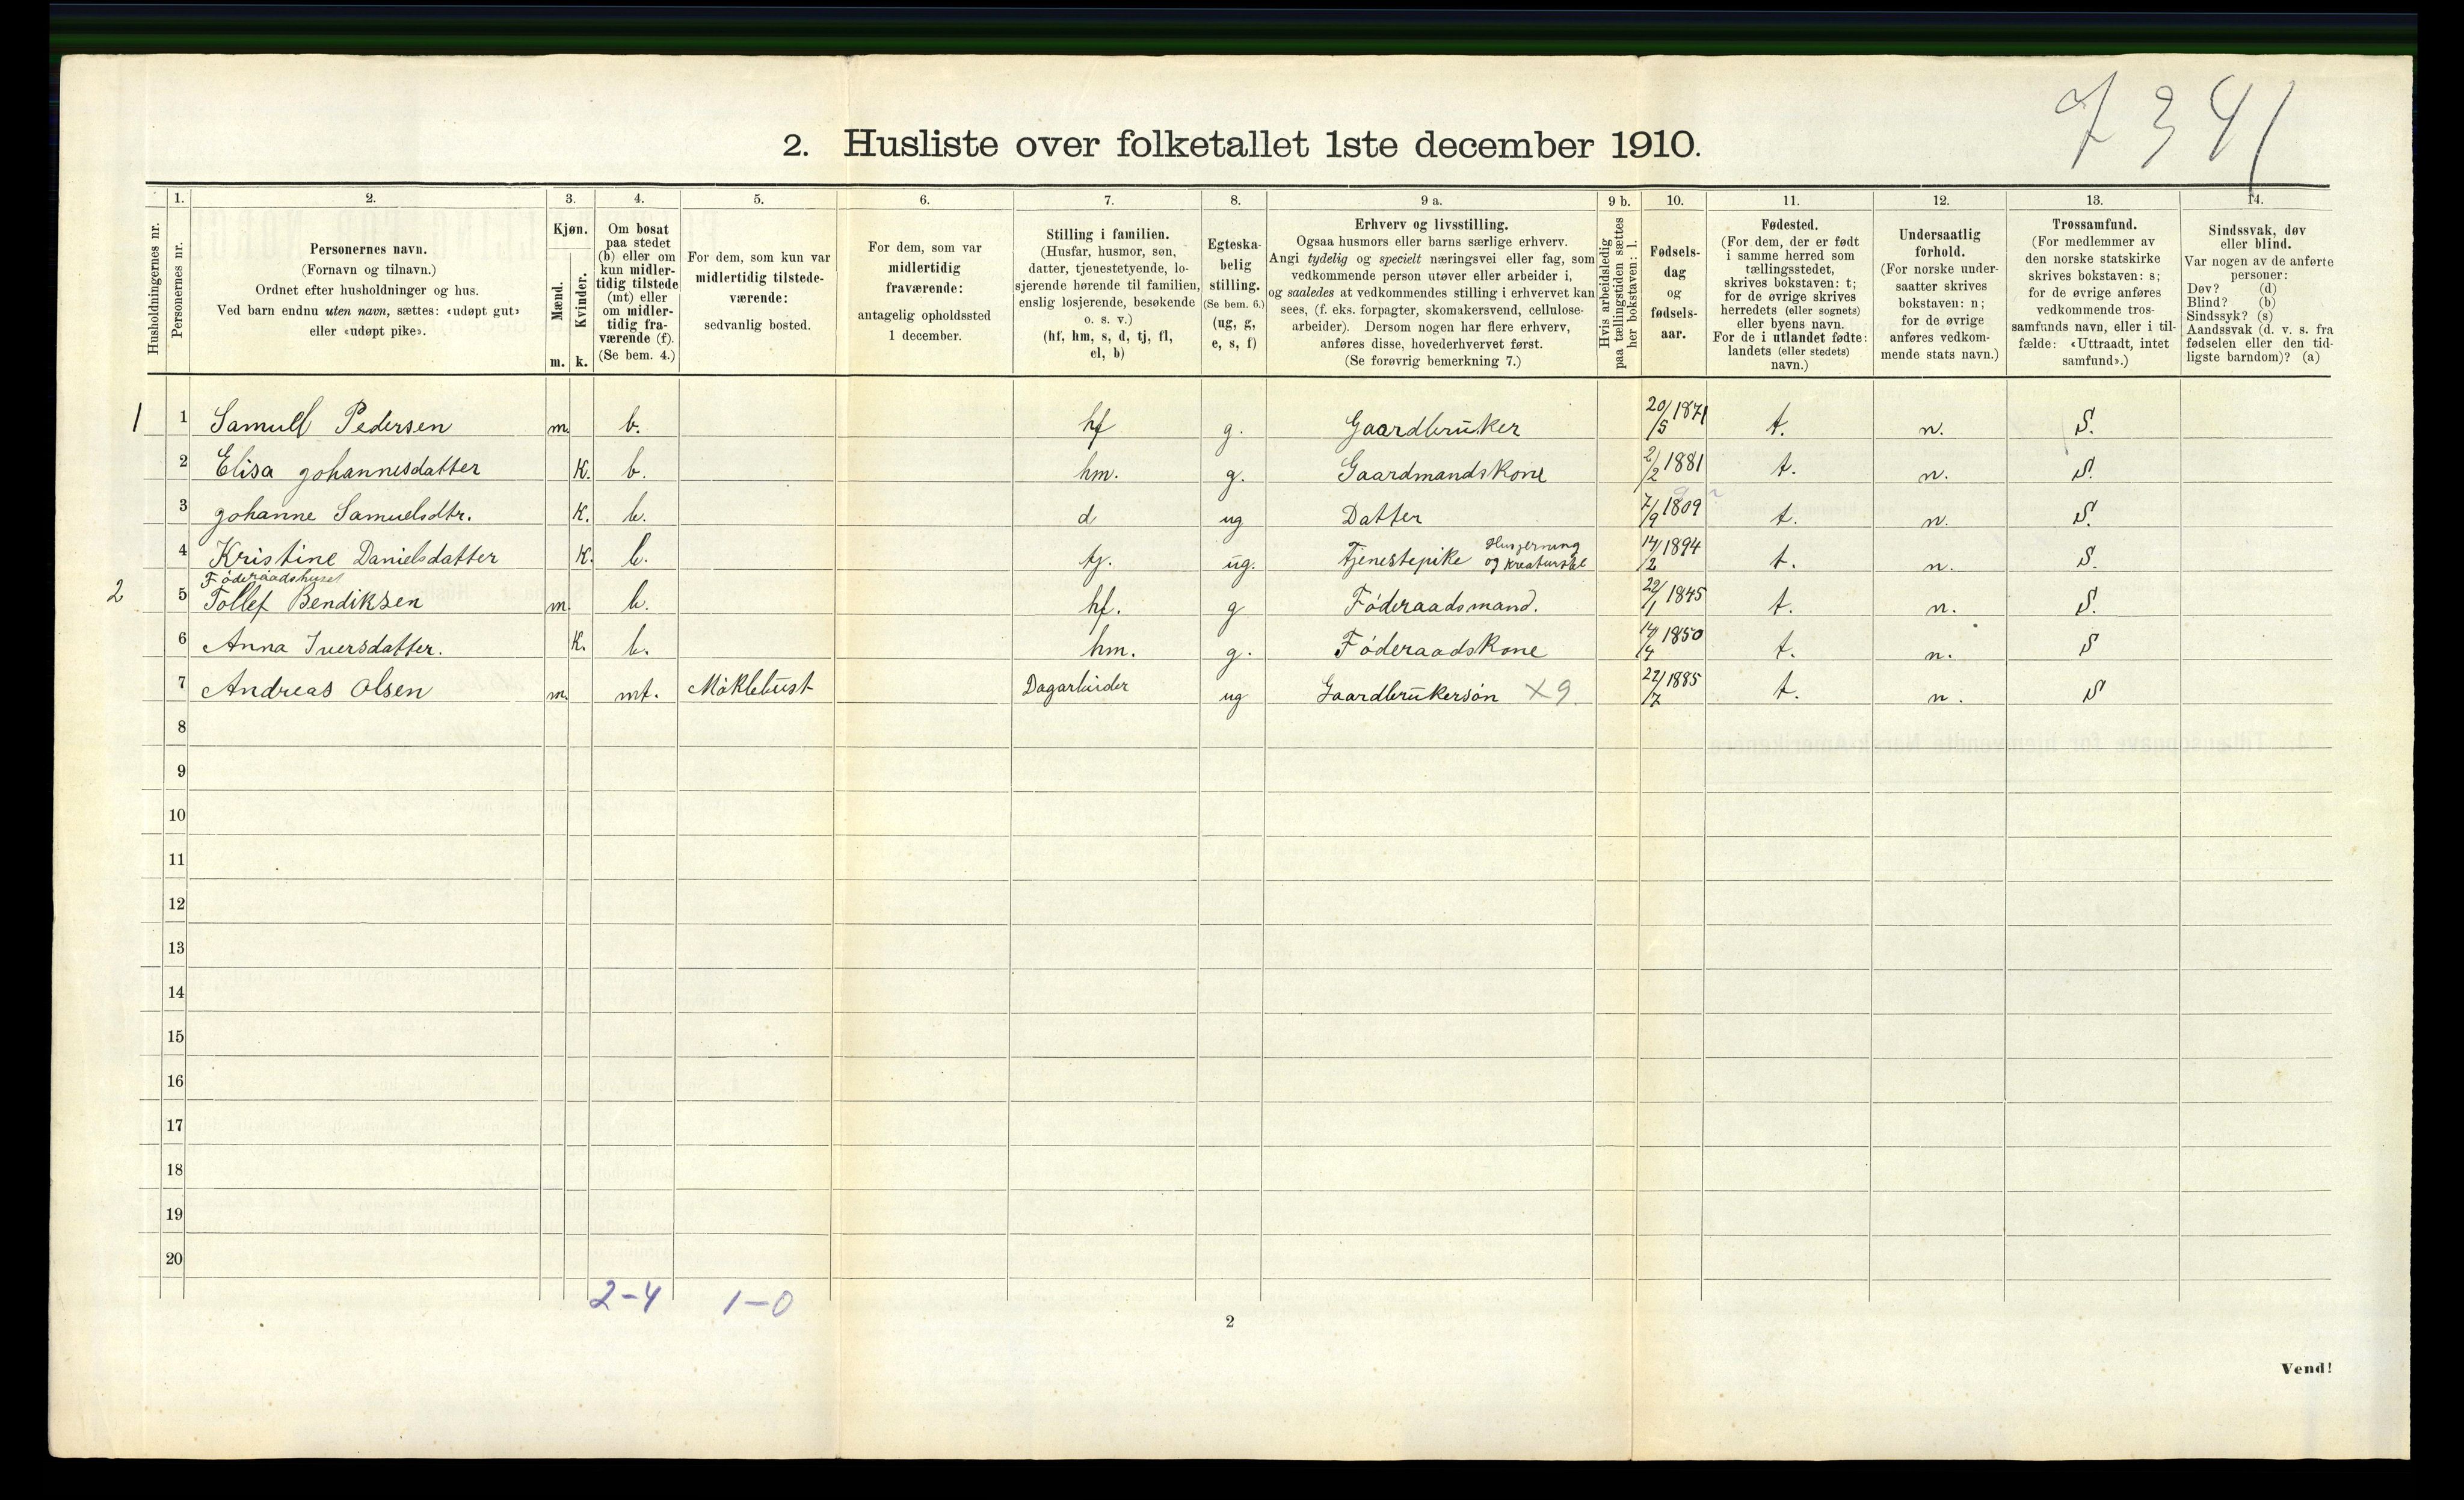 7341
2. Husliste over folketallet 1ste december 1910.
Husholdningernes nr.
1. Personernes nr.
2. Personernes navn.
(Fornavn og tilnavn.)
Ordnet efter husholdninger og hus.
Ved barn endnu uten navn, sættes: «udøpt gut»
eller «udøpt pike».
3. Kjøn.
Mænd. m.
Kvinder. k.
4. Om bosat
paa stedet
(b) eller om
kun midler-
tidig tilstede
(mt) eller
om midler-
tidig fra-
værende (f).
(Se bem. 4.)
5. For dem, som kun var
midlertidig tilstede-
værende:
sedvanlig bosted.
6. For dem, som var
midlertidig
fraværende:
antagelig opholdssted
1 december.
7. Stilling i familien.
(Husfar, husmor, søn,
datter, tjenestetyende, lo-
sjerende hørende til familien,
enslig losjerende, besøkende
o. s. v.)
(hf, hm, s, d, tj, fl,
el, b)
8. Egteska-
belig
stilling.
(Se bem. 6.)
(ug, g,
e, s, f)
9 a. Erhverv og livsstilling.
Ogsaa husmors eller barns særlige erhverv.
Angi tydelig og specielt næringsvei eller fag, som
vedkommende person utøver eller arbeider i,
og saaledes at vedkommendes stilling i erhvervet kan
sees, (f. eks. forpagter, skomakersvend, cellulose-
arbeider). Dersom nogen har flere erhverv,
anføres disse, hovederhvervet først.
(Se forøvrig bemerkning 7.)
9 b. Hvis arbeidsledig
paa tællingstiden sættes
her bokstaven: l.
10. Fødsels-
dag
og
fødsels-
aar.
11. Fødested.
(For dem, der er født
i samme herred som
tællingsstedet,
skrives bokstaven: t;
for de øvrige skrives
herredets (eller sognets)
eller byens navn.
For de i utlandet fødte:
landets (eller stedets)
navn.)
12. Undersaatlig
forhold.
(For norske under-
saatter skrives
bokstaven: n;
for de øvrige
anføres vedkom-
mende stats navn.)
13. Trossamfund.
(For medlemmer av
den norske statskirke
skrives bokstaven: s;
for de øvrige anføres
vedkommende tros-
samfunds navn, eller i til-
fælde: «Uttraadt, intet
samfund».)
14. Sindssvak, døv
eller blind.
Var nogen av de anførte
personer:
Døv? (d)
Blind? (b)
Sindssyk? (s)
Aandssvak (d. v. s. fra
fødselen eller den tid-
ligste barndom)? (a)
1 1 Samuel Pedersen m. b. hf g. Gaardbruker 20/5 1871 t. n. S.
2 Elisa Johannesdatter K. b. hm. g. Gaardmandskone 2/2 1881 t. n. S.
3 Johanne Samuelsdtr. K. b. d ug Datter 7/9 1809 t. n. S.
4 Kristine Danielsdatter K. b. tj. ug. Tjenestepike Husgerning og Kreaturstel 14/2 1894 t. n. S.
Føderaadshuset
2 5 Tollef Bendiksen m b. hf. g Føderaadsmand. 22/1 1845 t. n. S.
6 Anna Iversdatter. K. b. hm. g. Føderaadskone 14/4 1850 t. n. S
7 Andreas Olsen m. mt. Møklebust Dagarbeider ug Gaardbrukersøn X9. 22/7 1885 t. n. S
8
9
10
11
12
13
14
15
16
17
18
19
20
2-4 1-0
2
Vend!